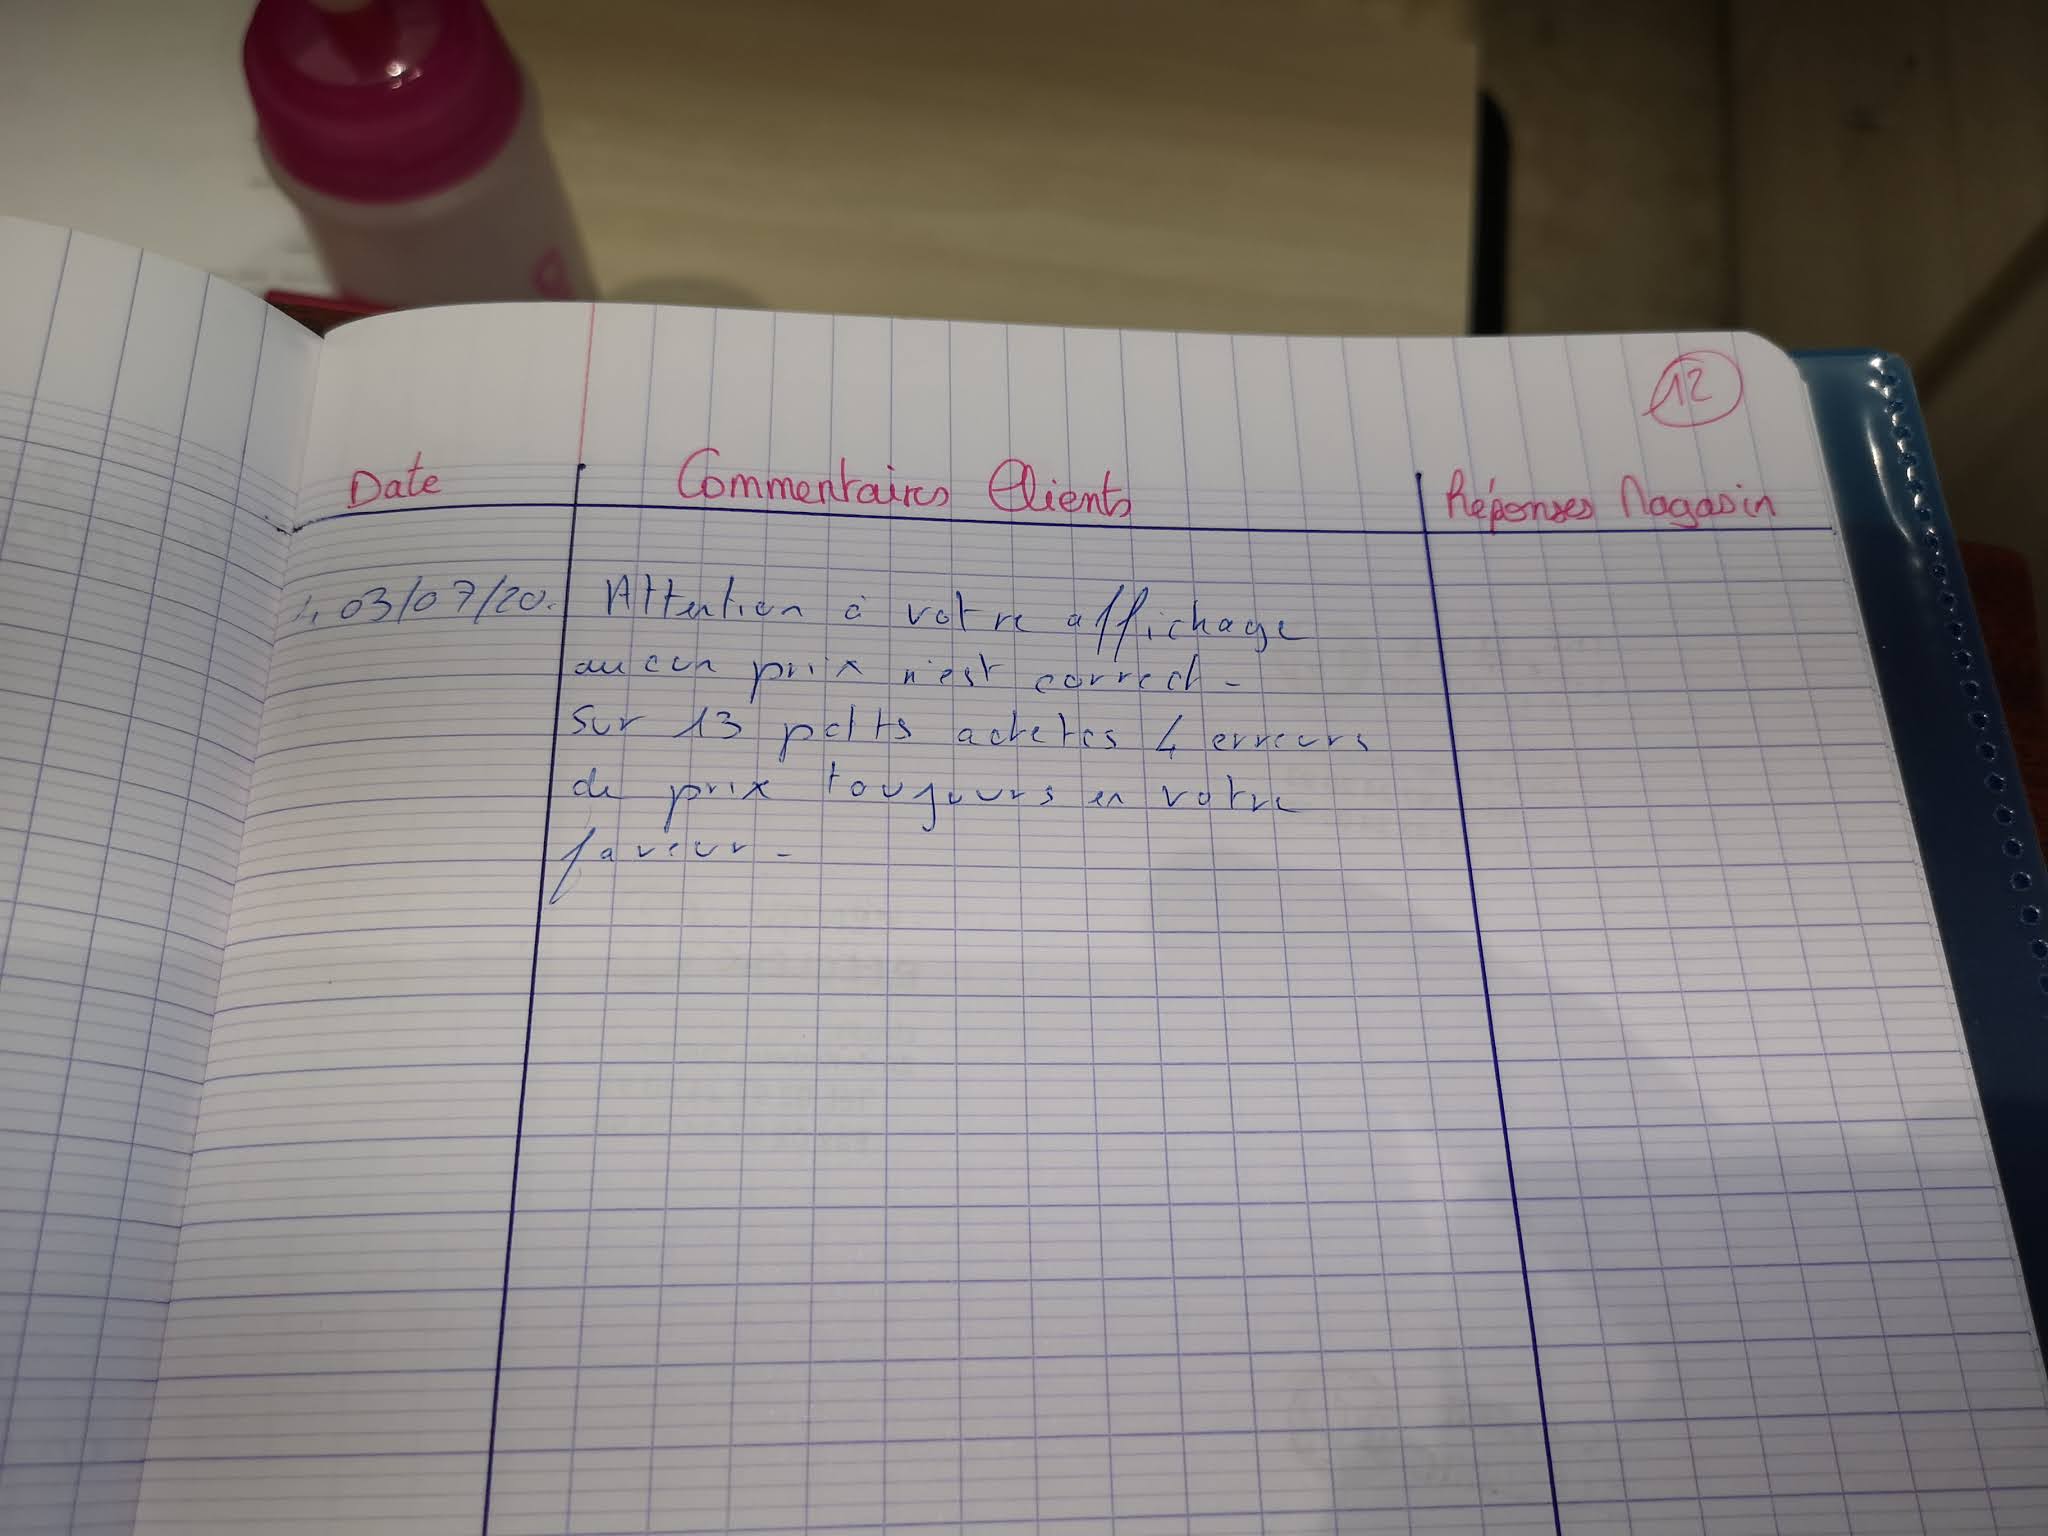 12
Date Commentaires Clients Réponses Magasin
03/07/20. Attention à votre affichage
aucun prix n'est correct -
Sur 13 pdts achetés 4 erreurs
de prix toujours en votre
faveur -